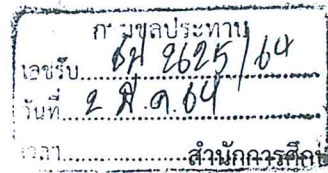 กรมชลประทาน
เลขรับ ชป 2625/64
วันที่ 2 มี.ค.64
เวลา
สำนักการศึกษา